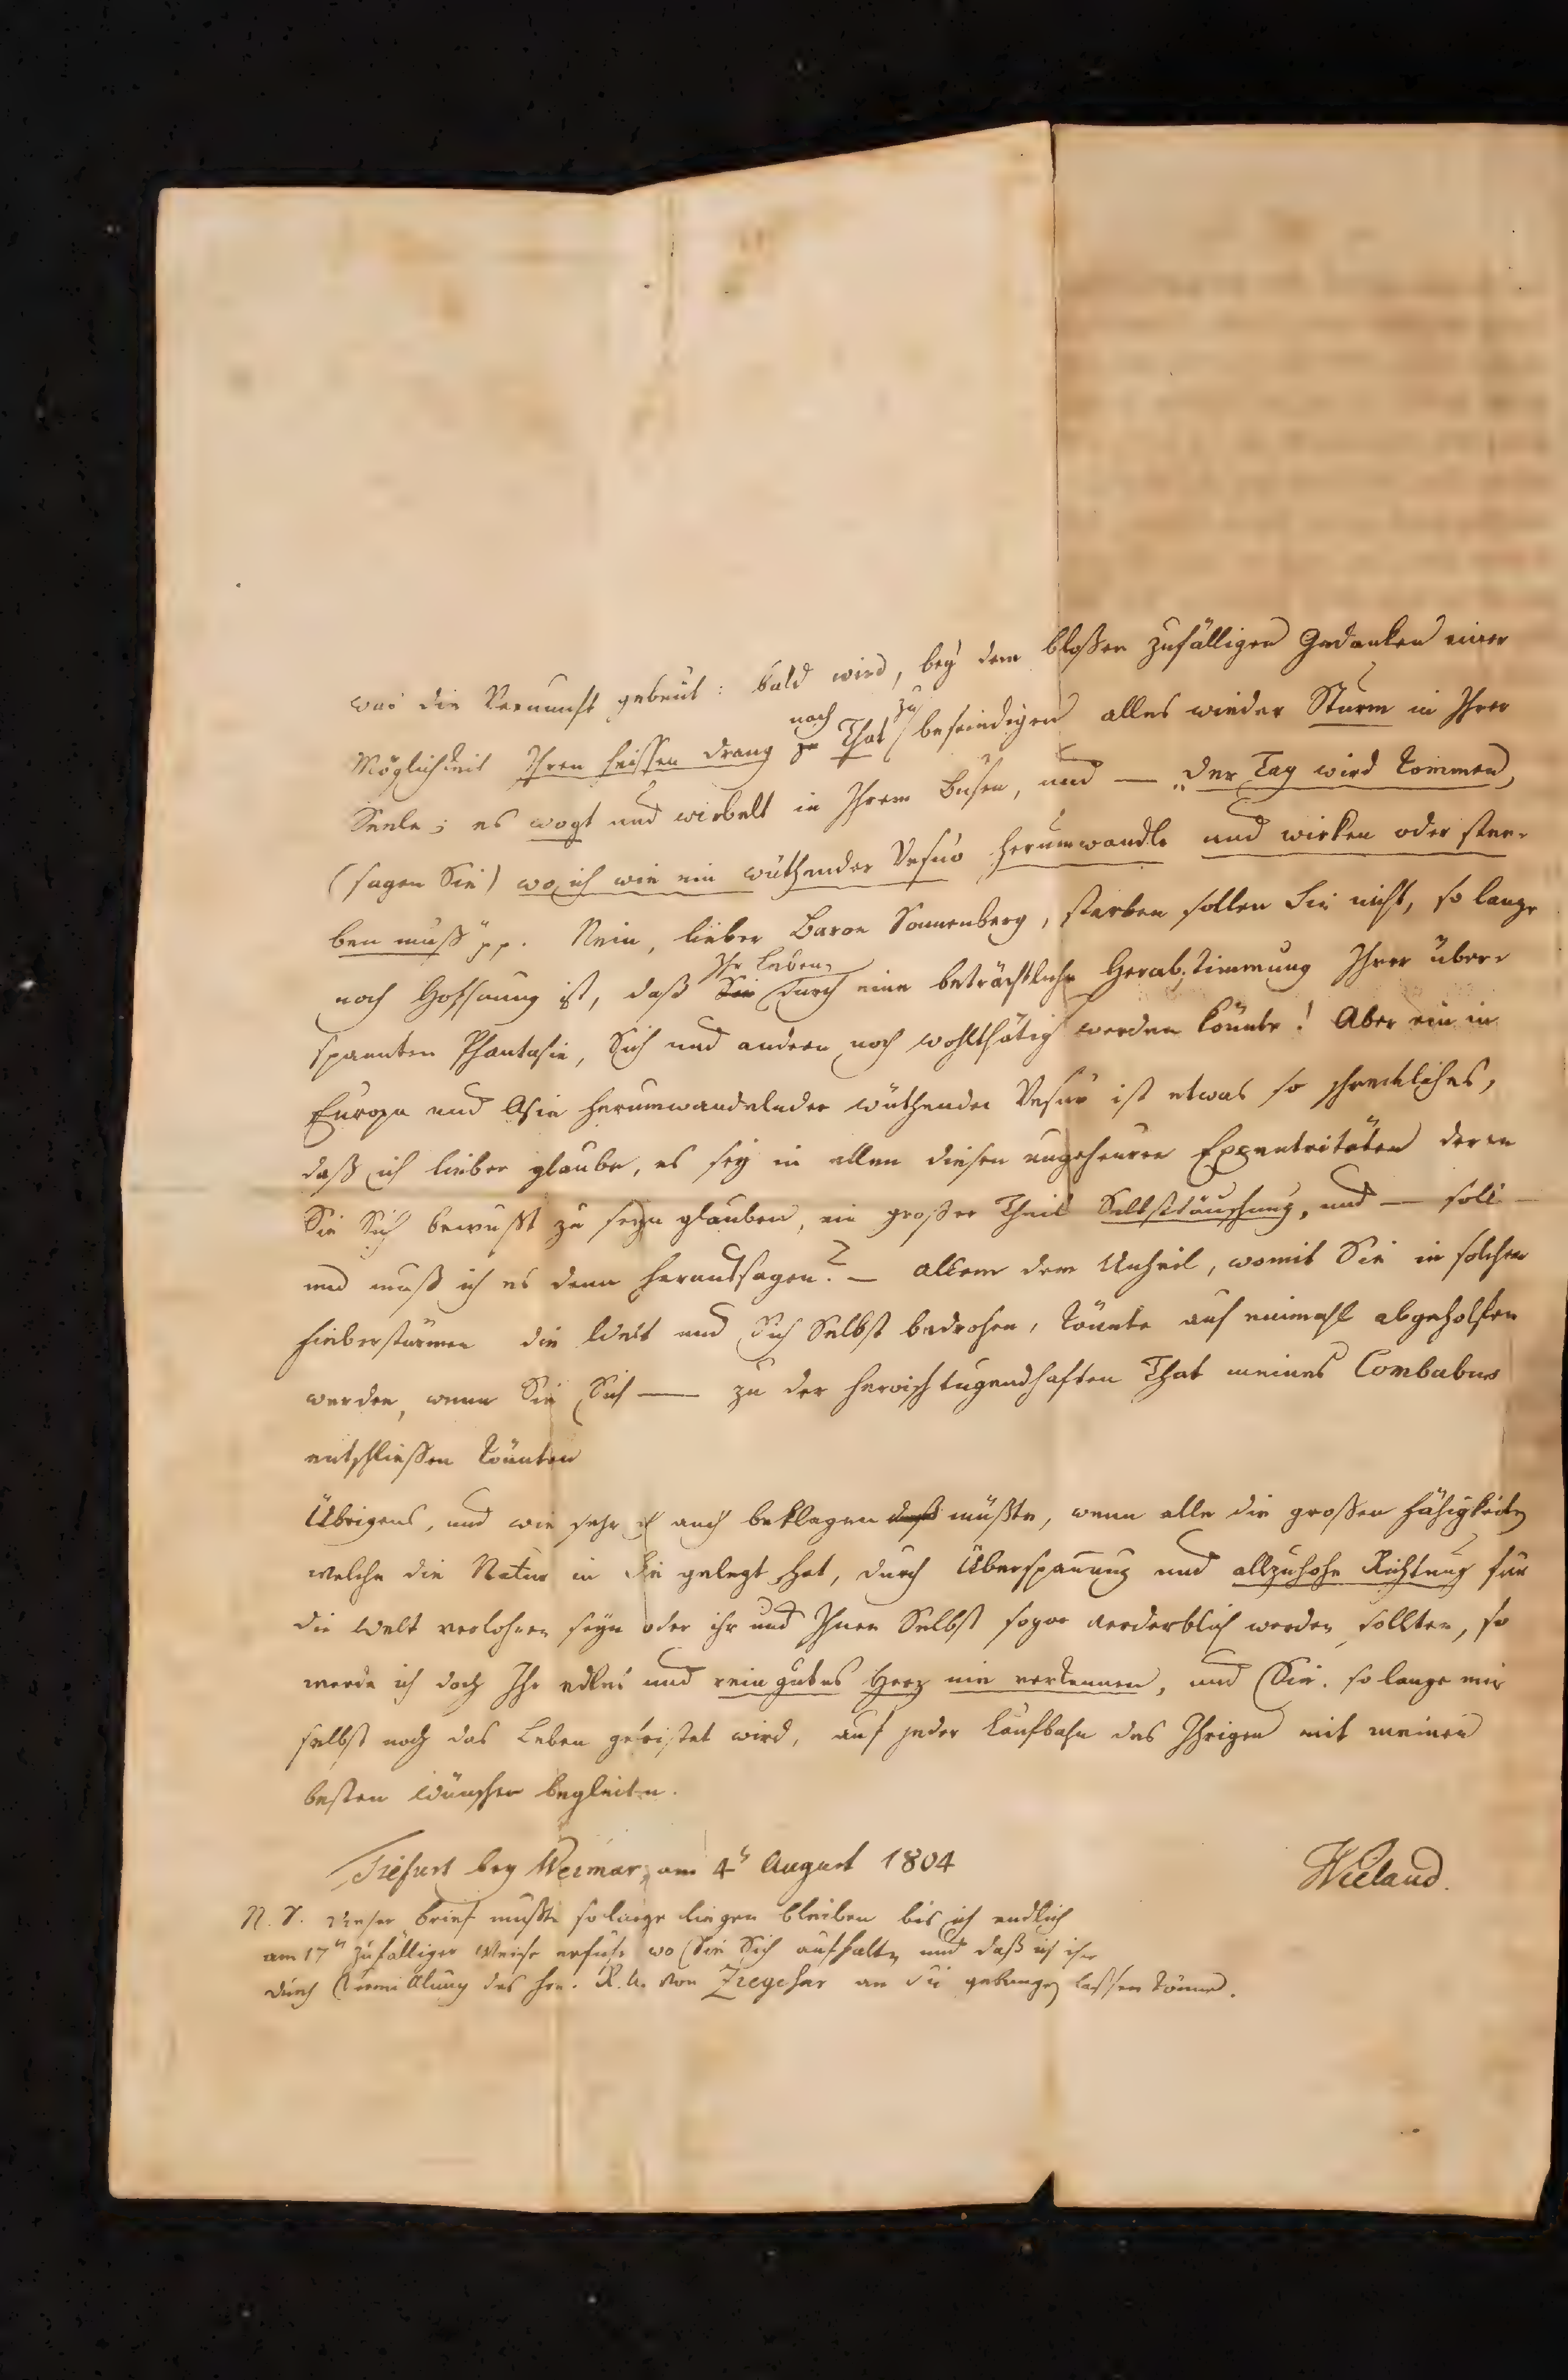 was die Vernunft gebeut: bald wird, bey dem bloßen zufälligen Gedanken einer
Möglichkeit Ihren heissen Drang nach That zu befriedigen alles wieder Sturm in Ihrer
Seele; es wogt und wirbelt in Ihrem Busen, und — „der Tag wird kommen,
(sagen Sie) wo ich wie ein wüthender Vesuv herumwandle und wirken oder ster-
ben muß" pp. Nein, lieber Baron Sonnenberg, sterben sollen Sie nicht, so lange
noch Hoffnung ist, daß Ihr Leben durch eine beträchtliche Herabstimmung Ihrer über-
spannten Phantasie, Sich und andern noch wohlthätig werden könnte! Aber ein in
Europa und Asie herumwandelnder wüthender Vesuv ist etwas so schreckliches,
daß ich lieber glaube, es sey in allen diesen ungeheuren Exzentritäten deren
Sie Sich bewußt zu seyn glauben, ein großer Theil Selbsttäuschung, und — soll —
und muß ich es denn heraussagen? — allem dem Unheil, womit Sie in solchen
Fieberstürmen die Welt und Sich Selbst bedrohen, könnte auf einmahl abgeholfen
werden, wenn Sie Sich — zu der heroischtugendhaften That meines Combabus
entschliessen könnten
Übrigens, und wie sehr ich auch beklagen müßte, wenn alle die großen Fähigkeiten
welche die Natur in Sie gelegt hat, durch Überspannung und allzuhohe Richtung für
die Welt verlohren seyn oder ihr und Ihnen Selbst sogar verderblich werden sollten, so
werde ich doch Ihr edles und rein gutes Herz nie verkennen, und Sie, so lange mir
selbst noch das Leben gefristet wird, auf jeder Laufbahn des Ihrigen mit meinen
besten Wünschen begleiten.
Tiefurt bey Weimar, am 4ⁿ August 1804
Wieland.
N. S. dieser Brief mußte solange liegen bleiben bis ich endlich
am 17ⁿ zufälliger Weise erfuhr wo Sie Sich aufhalten und daß ich ihn
durch Vermittlung des Hrn. von Ziegesar an Sie gelangen lassen könne.